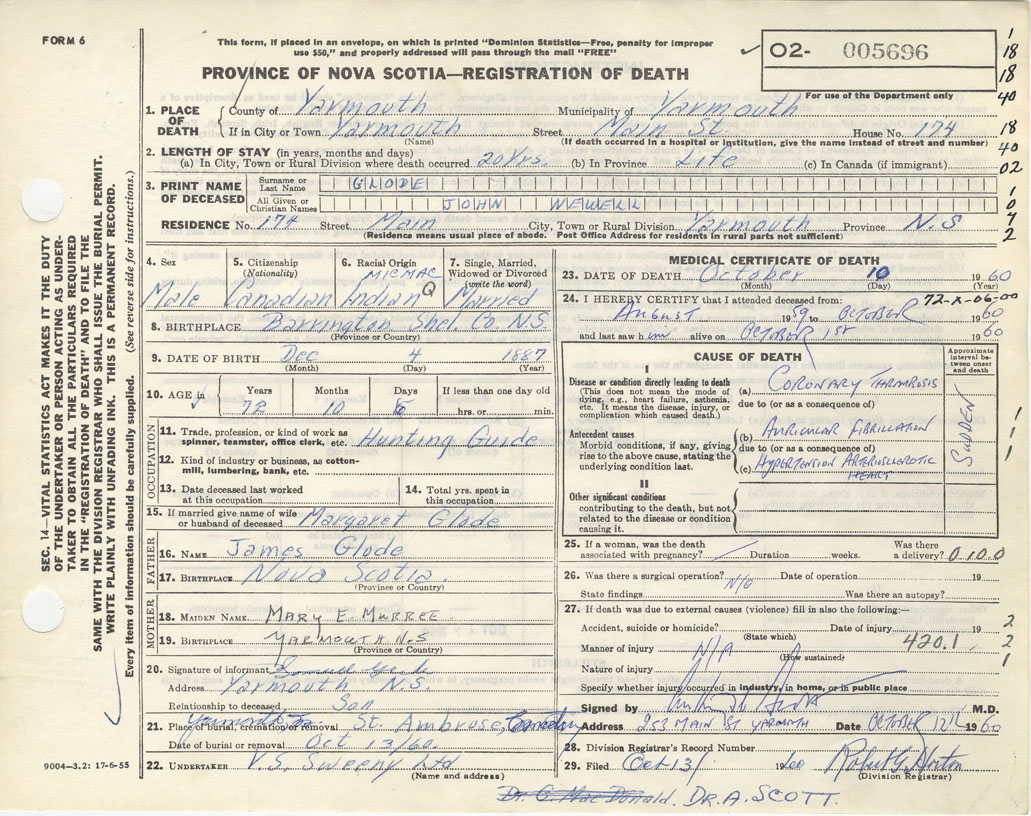 FORM 6
This form, if placed in an envelope, on which is printed "Dominion Statistics—Free, penalty for improper
use $50," and properly addressed will pass through the mail "FREE"
✓ 02- 005696
For use of the Department only
PROVINCE OF NOVA SCOTIA—REGISTRATION OF DEATH
1
18
18
40
18
40
02
1. PLACE OF DEATH County of Yarmouth Municipality of Yarmouth
If in City or Town Yarmouth Street Main St. House No. 174
(Name) (If death occurred in a hospital or institution, give the name instead of street and number)
2. LENGTH OF STAY (in years, months and days)
(a) In City, Town or Rural Division where death occurred 20 Yrs. (b) In Province Life (c) In Canada (if immigrant)
3. PRINT NAME OF DECEASED
Surname or Last Name GLODE
All Given or Christian Names JOHN NEWELL
1
0
7
2
RESIDENCE No. 174 Street Main City, Town or Rural Division Yarmouth Province N.S
(Residence means usual place of abode. Post Office Address for residents in rural parts not sufficient)
4. Sex Male
5. Citizenship (Nationality) Canadian
6. Racial Origin MICMAC Indian Q
7. Single, Married, Widowed or Divorced (write the word) Married
8. BIRTHPLACE Barrington Shel. Co. N.S.
(Province or Country)
9. DATE OF BIRTH Dec 4 1887
(Month) (Day) (Year)
10. AGE in ✓ Years 72 Months 10 Days 6 If less than one day old hrs. or min.
OCCUPATION
11. Trade, profession, or kind of work as spinner, teamster, office clerk, etc. Hunting Guide
12. Kind of industry or business, as cotton-mill, lumbering, bank, etc.
13. Date deceased last worked at this occupation
14. Total yrs. spent in this occupation
15. If married give name of wife or husband of deceased Margaret Glode
FATHER
16. NAME James Glode
17. BIRTHPLACE Nova Scotia.
(Province or Country)
MOTHER
18. MAIDEN NAME MARY E. MURREE
19. BIRTHPLACE YARMOUTH N.S
(Province or Country)
20. Signature of informant
Address Yarmouth N.S.
Relationship to deceased Son
21. Place of burial, cremation or removal St. Ambrose, Cemetery
Date of burial or removal Oct 13/60.
22. UNDERTAKER V.S. Sweeny Ltd
(Name and address)
MEDICAL CERTIFICATE OF DEATH
23. DATE OF DEATH October 10 1960
(Month) (Day) (Year)
72-X-06-00
24. I HEREBY CERTIFY that I attended deceased from:
AUGUST 1959 to OCTOBER 1960
and last saw him alive on OCTOBER 1st 1960
CAUSE OF DEATH
Approximate interval between onset and death
I
Disease or condition directly leading to death
(This does not mean the mode of dying, e.g., heart failure, asthenia, etc. It means the disease, injury, or complication which caused death.)
(a) CORONARY THROMBOSIS
due to (or as a consequence of)
SUDDEN
Antecedent causes
Morbid conditions, if any, giving rise to the above cause, stating the underlying condition last.
(b) AURICULAR FIBRILLATION
due to (or as a consequence of)
(c) HYPERTENSION ARTERIOSCLEROTIC HEART
1
1
1
II
Other significant conditions
contributing to the death, but not related to the disease or condition causing it.
25. If a woman, was the death associated with pregnancy? Duration weeks. Was there a delivery? 0100
26. Was there a surgical operation? N/O Date of operation 19
State findings Was there an autopsy?
27. If death was due to external causes (violence) fill in also the following:—
Accident, suicide or homicide? Date of injury 19
(State which) 420.1
Manner of injury N/A
(How sustained)
Nature of injury
Specify whether injury occurred in industry, in home, or in public place
2
2
1
Signed by M.D.
Address 253 MAIN ST YARMOUTH Date OCTOBER 12th 1960
28. Division Registrar's Record Number
29. Filed Oct 13/ 1960 Robert G. Horton
(Division Registrar)
Dr. G. MacDonald. DR. A. SCOTT.
SEC. 14—VITAL STATISTICS ACT MAKES IT THE DUTY
OF THE UNDERTAKER OR PERSON ACTING AS UNDER-
TAKER TO OBTAIN ALL THE PARTICULARS REQUIRED
IN THE "REGISTRATION OF DEATH" AND TO FILE THE
SAME WITH THE DIVISION REGISTRAR WHO SHALL ISSUE THE BURIAL PERMIT.
WRITE PLAINLY WITH UNFADING INK. THIS IS A PERMANENT RECORD.
Every item of information should be carefully supplied. (See reverse side for instructions.)
9004—3.2: 17-6-55